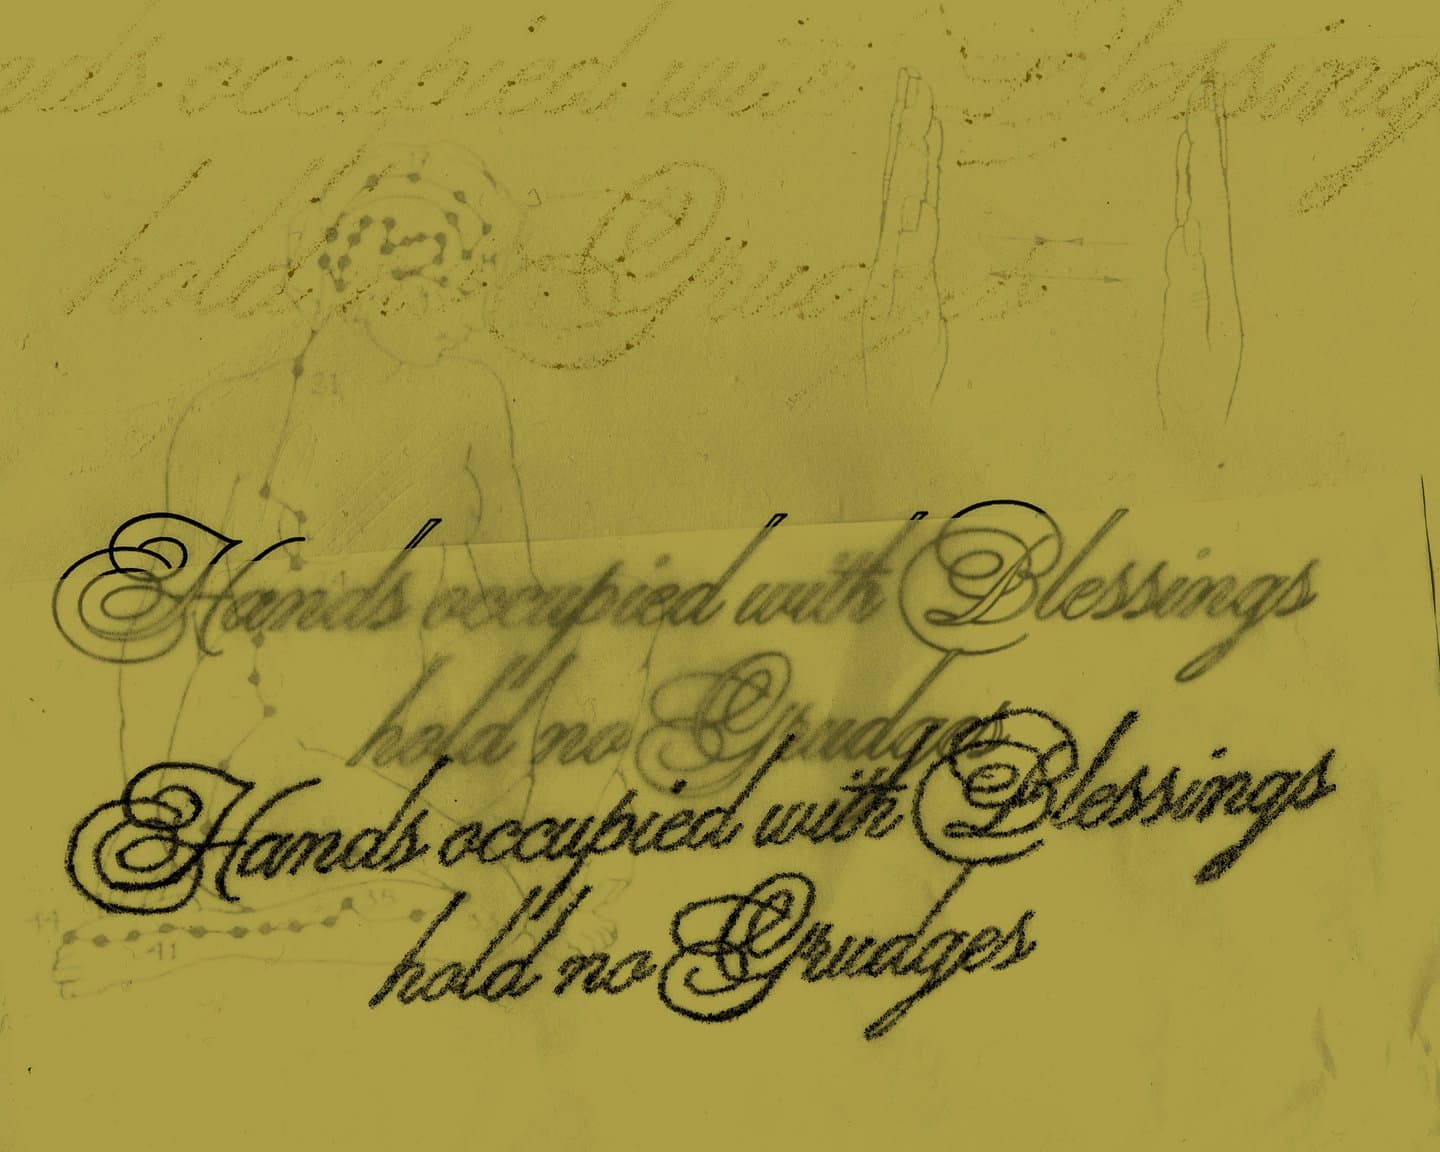 ands occupied with Blessing
hold no Grudges
17
21
Hands occupied with Blessings
hold no Grudges
Hands occupied with Blessings
hold no Grudges
44
38
41